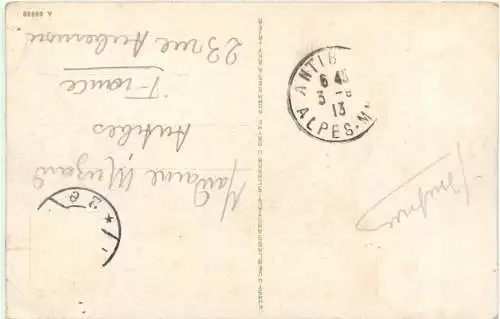 Madame Muzard
Antibes
France
23 rue Aubernon
ANTIB
6 45
3 -8
13
ALPES-M
2 e